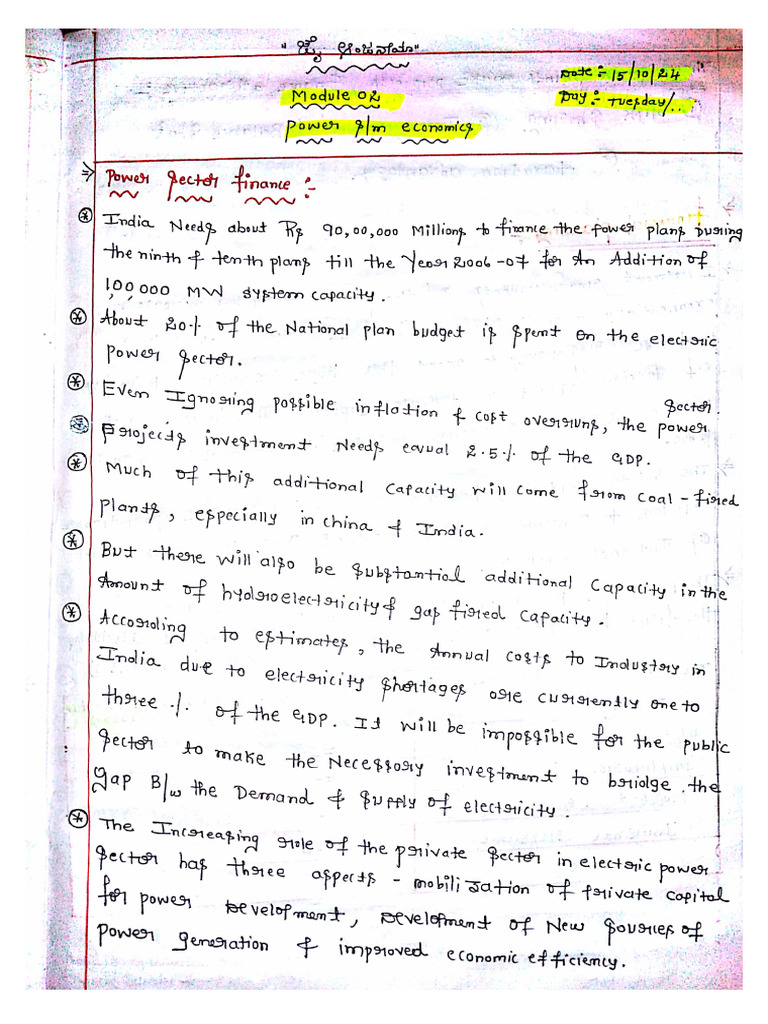 "ಜೈ ಭೀಮ"
Date:- 15/10/24
Module 02
Day:- Tuesday/..
power s/m economics
⇒ Power Sector finance :-
⊛ India Needs about Rs 90,00,000 Millions to finance the power plans During
the ninth & tenth plans till the Year 2006-07 for An Addition of
1,00,000 MW system capacity.
⊛ About 20% of the National plan budget is spent on the electric
power sector.
⊛ Even Ignoring possible inflation & cost overruns, the power sector.
projects investment Needs equal 2.5% of the GDP.
⊛ Much of this additional capacity will come from coal-fired
plants, especially in china & India.
⊛ But there will also be substantial additional Capacity in the
Amount of hydroelectricity & gas fired Capacity.
⊛ According to estimates, the Annual costs to Industry in
India due to electricity shortages are currently one to
three % of the GDP. It will be impossible for the public
sector to make the Necessary investment to bridge the
gap B/w the Demand & supply of electricity.
⊛ The Increasing role of the private sector in electric power
sector has three aspects - mobilisation of private capital
for power Development, Development of New Sources of
power generation & improved economic efficiency.